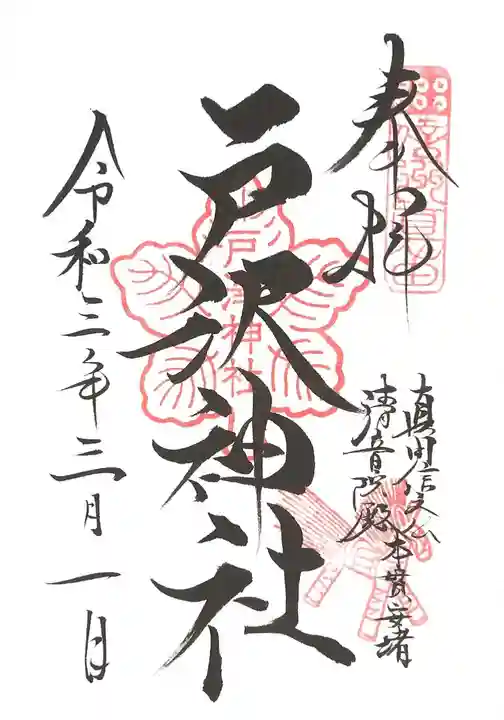 奉拝
真田信之公
清音院殿 本貫安堵
戸沢神社
戸沢神社
令和三年三月一日